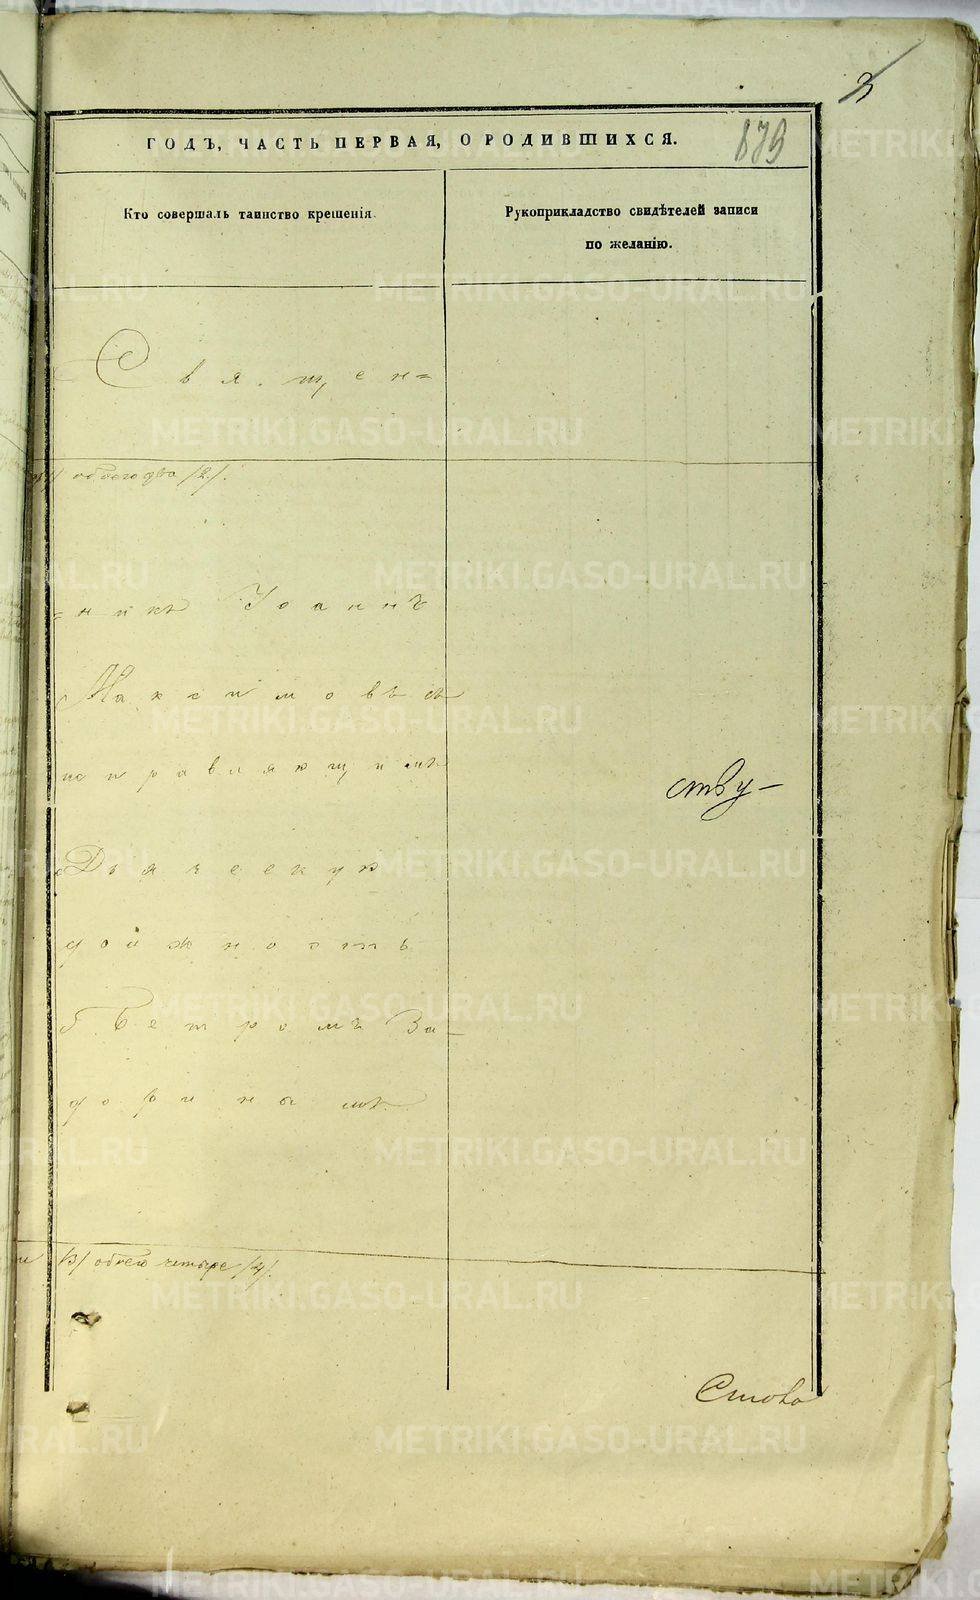 3
ГОДЪ, ЧАСТЬ ПЕРВАЯ, О РОДИВШИХСЯ.
879
Кто совершалъ таинство крещенія.
Рукоприкладство свидѣтелей записи
по желанію.
Священ=
обоего два /2/.
=никъ Іоаннъ
Максимовъ съ
исправляющимъ
Дьяческую
должность
Петромъ За-
дориным
ству-
обоего четыре /4/.
METRIKI.GASO-URAL.RU